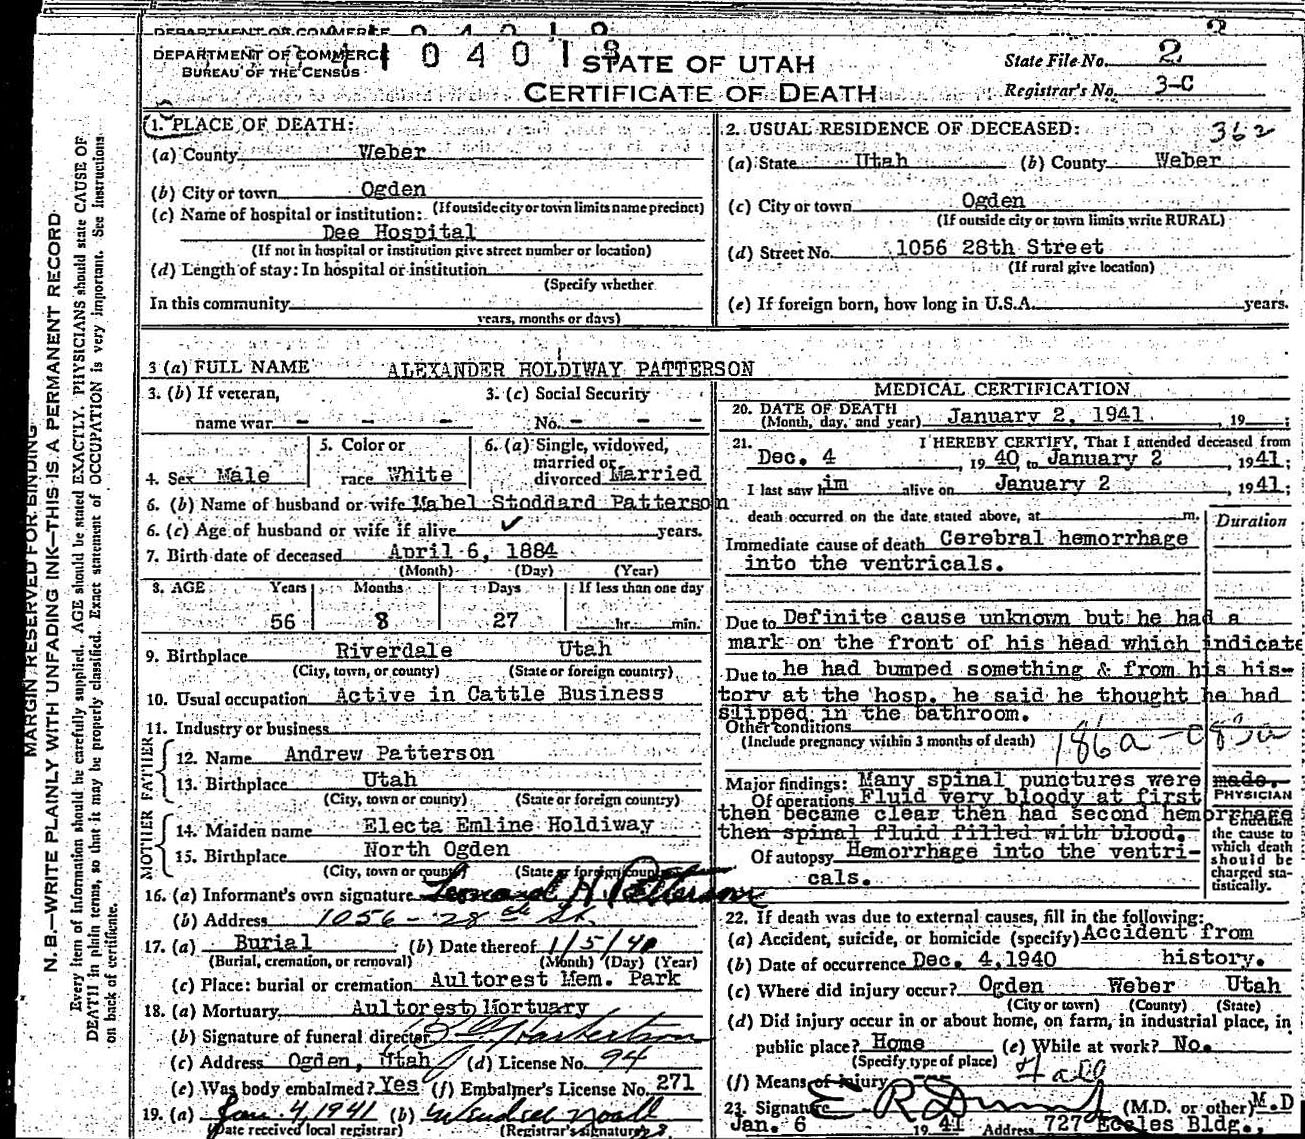 DEPARTMENT OF COMMERCE
BUREAU OF THE CENSUS
104018
STATE OF UTAH
CERTIFICATE OF DEATH
State File No. 2
Registrar's No. 3-C
1. PLACE OF DEATH:
(a) County Weber
(b) City or town Ogden
(If outside city or town limits name precinct)
(c) Name of hospital or institution:
Dee Hospital
(If not in hospital or institution give street number or location)
(d) Length of stay: In hospital or institution
(Specify whether
In this community
years, months or days)
2. USUAL RESIDENCE OF DECEASED: 362
(a) State Utah (b) County Weber
(c) City or town Ogden
(If outside city or town limits write RURAL)
(d) Street No. 1056 28th Street
(If rural give location)
(e) If foreign born, how long in U.S.A. years.
3 (a) FULL NAME ALEXANDER HOLDIWAY PATTERSON
3. (b) If veteran, name war - - - -
3. (c) Social Security No. - - -
4. Sex Male
5. Color or race White
6. (a) Single, widowed, married or divorced Married
6. (b) Name of husband or wife Mabel Stoddard Patterson
6. (c) Age of husband or wife if alive ✓ years.
7. Birth date of deceased April 6, 1884
(Month) (Day) (Year)
8. AGE Years Months Days If less than one day
56 8 27 hr. min.
9. Birthplace Riverdale Utah
(City, town, or county) (State or foreign country)
10. Usual occupation Active in Cattle Business
11. Industry or business
FATHER
12. Name Andrew Patterson
13. Birthplace Utah
(City, town or county) (State or foreign country)
MOTHER
14. Maiden name Electa Emline Holdiway
15. Birthplace North Ogden
(City, town or county) (State or foreign country)
16. (a) Informant's own signature Leonard H. Patterson
(b) Address 1056 - 28th St.
17. (a) Burial (b) Date thereof 1/5/40
(Burial, cremation, or removal) (Month) (Day) (Year)
(c) Place: burial or cremation Aultorest Mem. Park
18. (a) Mortuary Aultorest Mortuary
(b) Signature of funeral director
(c) Address Ogden, Utah (d) License No. 94
(e) Was body embalmed? Yes (f) Embalmer's License No. 271
19. (a) Jan. 4, 1941 (b)
(Date received local registrar) (Registrar's signature)
MEDICAL CERTIFICATION
20. DATE OF DEATH
(Month, day, and year) January 2, 1941, 19
21. I HEREBY CERTIFY, That I attended deceased from
Dec. 4, 1940, to January 2, 1941;
I last saw him alive on January 2, 1941;
death occurred on the date stated above, at m.
Duration
Immediate cause of death Cerebral hemorrhage
into the ventricals.
Due to Definite cause unknown but he had a
mark on the front of his head which indicate
Due to he had bumped something & from his his-
tory at the hosp. he said he thought he had
slipped in the bathroom.
Other conditions
(Include pregnancy within 3 months of death) 186a
Major findings: Many spinal punctures were made.
Of operations Fluid very bloody at first
then became clear then had second hemorrhage
then spinal fluid filled with blood.
Of autopsy Hemorrhage into the ventri-
cals.
PHYSICIAN
Underline
the cause to
which death
should be
charged sta-
tistically.
22. If death was due to external causes, fill in the following:
(a) Accident, suicide, or homicide (specify) Accident from
history.
(b) Date of occurrence Dec. 4, 1940
(c) Where did injury occur? Ogden Weber Utah
(City or town) (County) (State)
(d) Did injury occur in or about home, on farm, in industrial place, in
public place? Home (e) While at work? No.
(Specify type of place)
(f) Means of injury Fall
23. Signature E. R. (M.D. or other) M.D
Jan. 6 1941 Address 727 Eccles Bldg.,
MARGIN RESERVED FOR BINDING
N. B.—WRITE PLAINLY WITH UNFADING INK—THIS IS A PERMANENT RECORD
Every item of information should be carefully supplied. AGE should be stated EXACTLY. PHYSICIANS should state CAUSE OF
DEATH in plain terms, so that it may be properly classified. Exact statement of OCCUPATION is very important. See Instructions
on back of certificate.